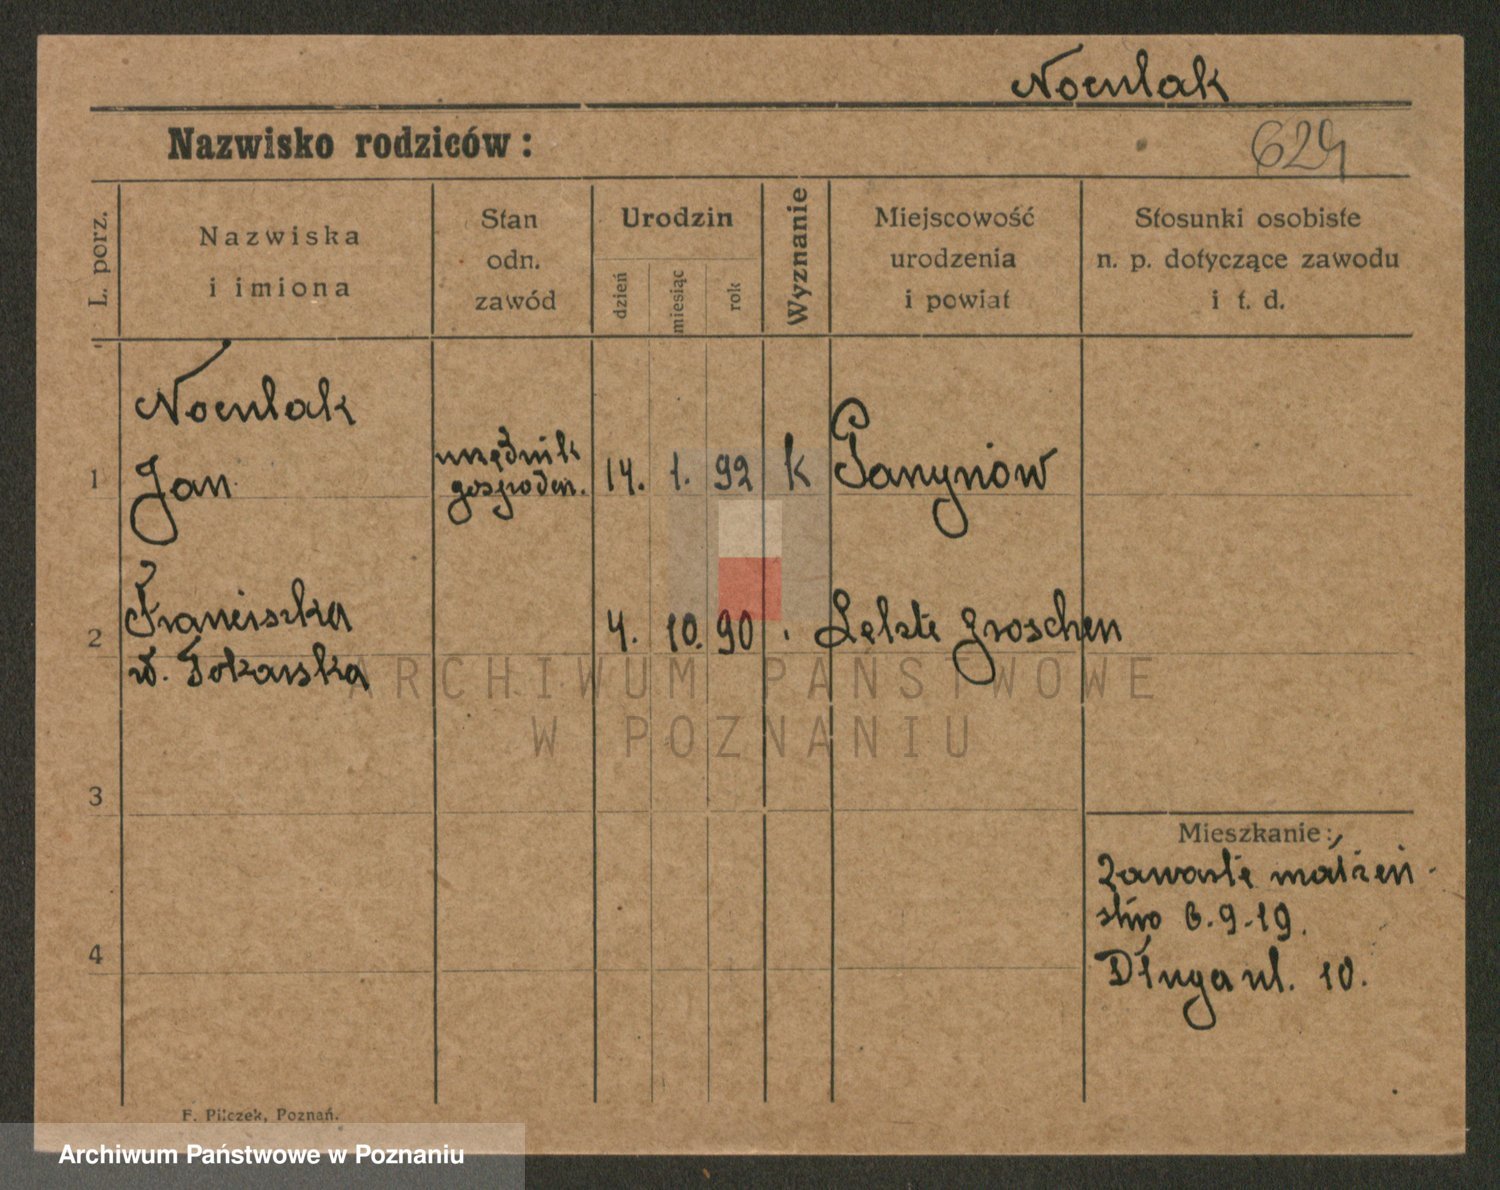 Noculak
Nazwisko rodziców:
L. porz.
Nazwiska
i imiona
Stan
odn.
zawód
Urodzin
dzień
miesiąc
rok
Wyznanie
Miejscowość
urodzenia
i powiat
Stosunki osobiste
n. p. dotyczące zawodu
i t. d.
Noculak
1 Jan urzędnik gospodar. 14. 1. 92 k
2 Franciszka 4. 10. 90 Letzte Groschen
w. Tokarska
3
4
Mieszkanie:
Zawarte małżeń-
stwo 6.9.19.
Długa ul. 10.
F. Pilczek, Poznań.
ARCHIWUM PAŃSTWOWE
W POZNANIU
Archiwum Państwowe w Poznaniu